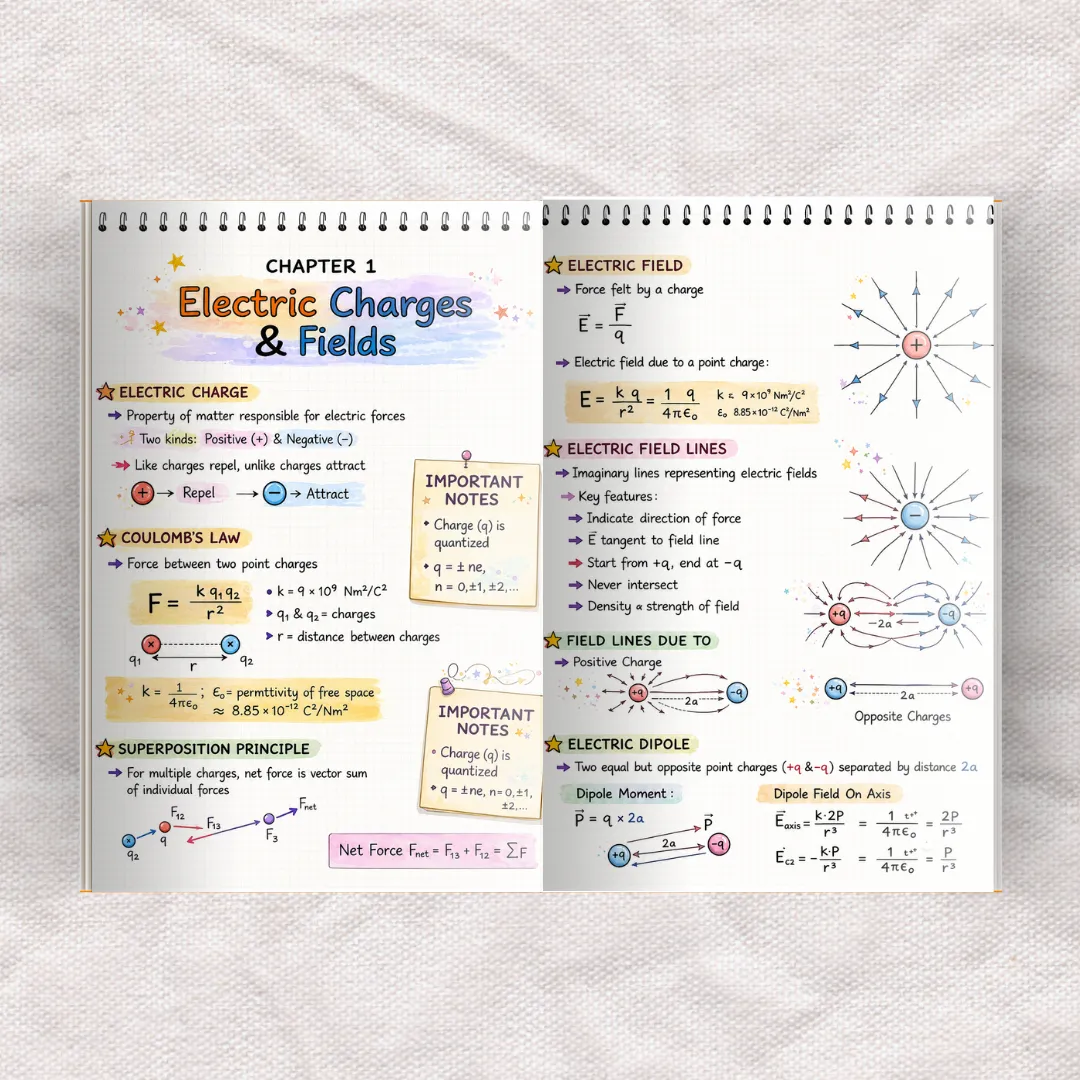 CHAPTER 1
Electric Charges
& Fields
ELECTRIC CHARGE
→ Property of matter responsible for electric forces
Two kinds: Positive (+) & Negative (−)
→ Like charges repel, unlike charges attract
+ → Repel → − → Attract
COULOMB'S LAW
→ Force between two point charges
F = k q₁ q₂ / r²
• k = 9 × 10⁹ Nm²/C²
▸ q₁ & q₂ = charges
▸ r = distance between charges
q₁ r q₂
k = 1 / 4πε₀ ; ε₀ = permttivity of free space
≈ 8.85 × 10⁻¹² C²/Nm²
SUPERPOSITION PRINCIPLE
→ For multiple charges, net force is vector sum
of individual forces
q₂ q F₁₂ F₁₃ F₃ Fnet
Net Force Fnet = F₁₃ + F₁₂ = ∑F
IMPORTANT
NOTES
• Charge (q) is
quantized
• q = ± ne,
n = 0,±1, ±2,...
IMPORTANT
NOTES
• Charge (q) is
quantized
• q = ±ne, n= 0,±1,
±2,...
ELECTRIC FIELD
→ Force felt by a charge
E⃗ = F⃗ / q
→ Electric field due to a point charge:
E = k q / r² = 1 q / 4πε₀
k = 9×10⁹ Nm²/C²
ε₀ 8.85×10⁻¹² C²/Nm²
+
ELECTRIC FIELD LINES
→ Imaginary lines representing electric fields
→ Key features:
→ Indicate direction of force
→ E⃗ tangent to field line
→ Start from +q, end at −q
→ Never intersect
→ Density ∝ strength of field
−
+q −2a −q
FIELD LINES DUE TO
→ Positive Charge
+q 2a −q
+q 2a +q
Opposite Charges
ELECTRIC DIPOLE
→ Two equal but opposite point charges (+q &−q) separated by distance 2a
Dipole Moment:
P⃗ = q × 2a
+q 2a P⃗ −q
Dipole Field On Axis
E⃗axis = k·2P / r³ = 1 / 4πε₀ = 2P / r³
Ec2 = − k·P / r³ = 1 / 4πε₀ = P / r³